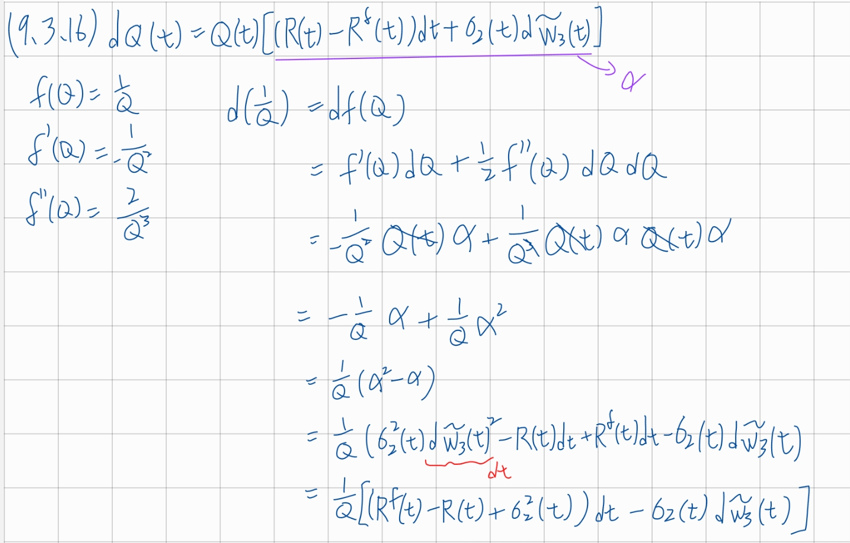 (9.3.16) dQ(t) = Q(t)[(R(t) − R^f(t))dt + σ₂(t)dW̃₃(t)]
α
f(Q) = 1/Q
d(1/Q) = df(Q)
f'(Q) = −1/Q²
= f'(Q)dQ + 1/2 f''(Q) dQ dQ
f''(Q) = 2/Q³
= −1/Q² Q(t) α + 1/Q³ Q(t) α Q(t) α
= −1/Q α + 1/Q α²
= 1/Q (α² − α)
= 1/Q (σ₂²(t)dW̃₃(t)² − R(t)dt + R^f(t)dt − σ₂(t)dW̃₃(t)
dt
= 1/Q [(R^f(t) − R(t) + σ₂²(t))dt − σ₂(t)dW̃₃(t)]